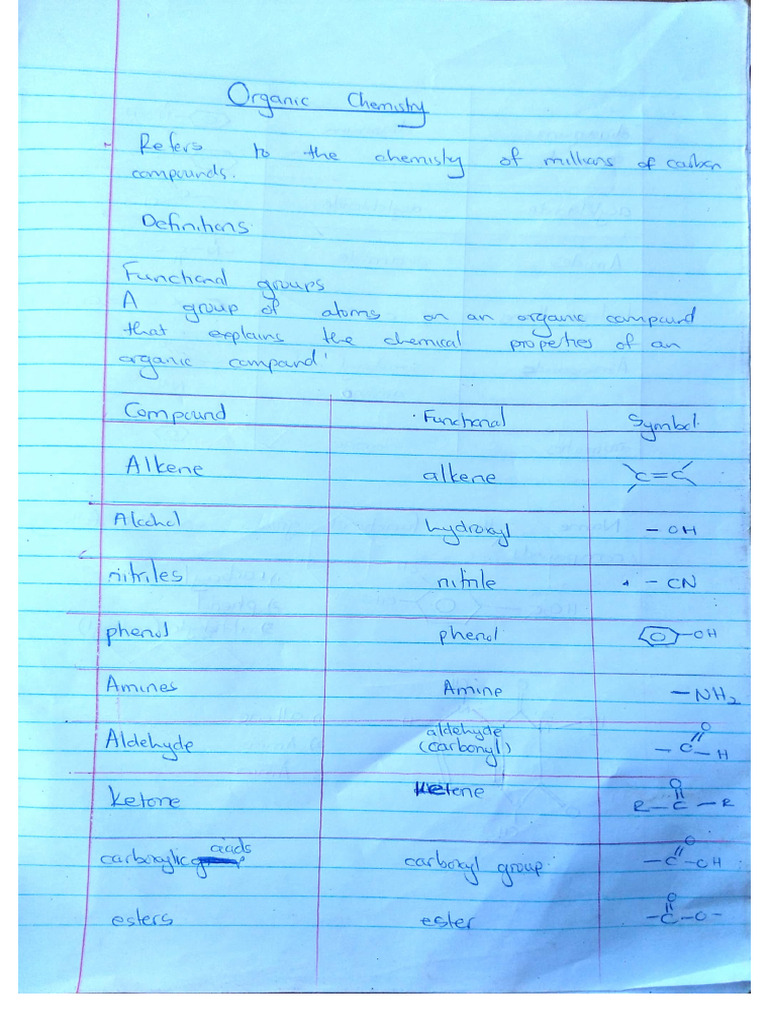 Organic Chemistry
- Refers to the chemisty of millions of carbon
compounds.
Definitions
Functional groups
A group of atoms on an organic compound
that explains the chemical properties of an
organic compound'
Compound Functional Symbol.
Alkene alkene C=C
Alcohol hydroxyl - OH
nitriles nitrile - CN
phenol phenol -OH
Amines Amine -NH2
Aldehyde aldehyde (carbonyl) O - C - H
ketone ketone O R - C - R
carboxylic acids carboxyl group O - C - OH
esters ester O - C - O -